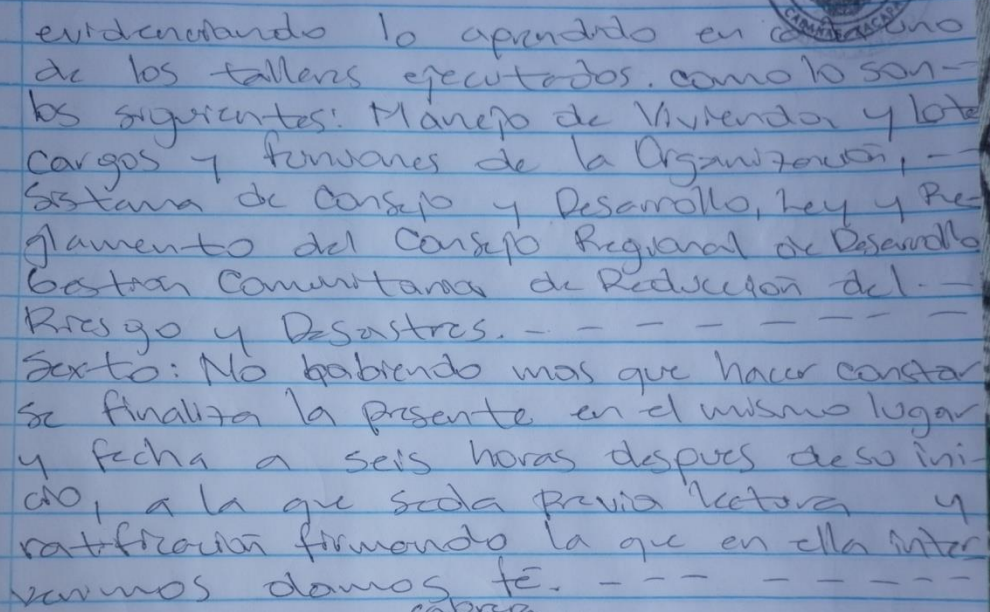 evidenciando lo aprendido en uno
de los talleres ejecutados. como lo son-
los siguientes: Manejo de Vivienda y lote
cargos y funciones de la Organización, -
Sistema de Consejo y Desarrollo, Ley y Re-
glamento del Consejo Regional de Desarrollo
Gestion Comunitaria de Reducción del. -
Riesgo y Desastres. - - - - - - - -
Sexto: No habiendo mas que hacer constar
se finaliza la presente en el mismo lugar
y fecha a seis horas despues de su ini-
cio, a la que se da previa lectura y
ratificación firmando la que en ella inter
venimos damos fé. - - - - - - - -